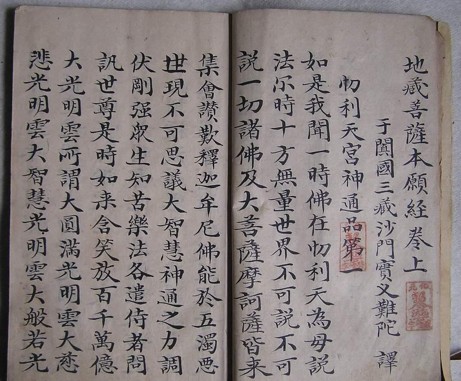 地藏菩薩本願經卷上
于闐國三藏沙門實叉難陀 譯
忉利天宮神通品第一
如是我聞一時佛在忉利天為母說
法尔時十方無量世界不可說不可
說一切諸佛及大菩薩摩訶薩皆来
集會讚歎釋迦牟尼佛能於五濁惡
世現不可思議大智慧神通之力調
伏剛强眾生知苦樂法各遣侍者問
訊世尊是時如来含笑放百千萬億
大光明雲所謂大圓滿光明雲大慈
悲光明雲大智慧光明雲大般若光